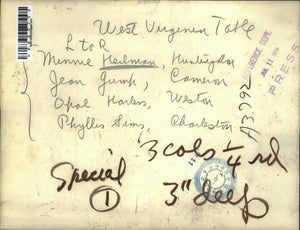 West Virginia Table
L to R
Minnie Heilman, Huntingdon
Jean Gump, Cameron
Opal Harless, Weston
Phyllis Sims, Charleston
A3792
PRESS
3 cols - 4 rd
Special
3" deep
1